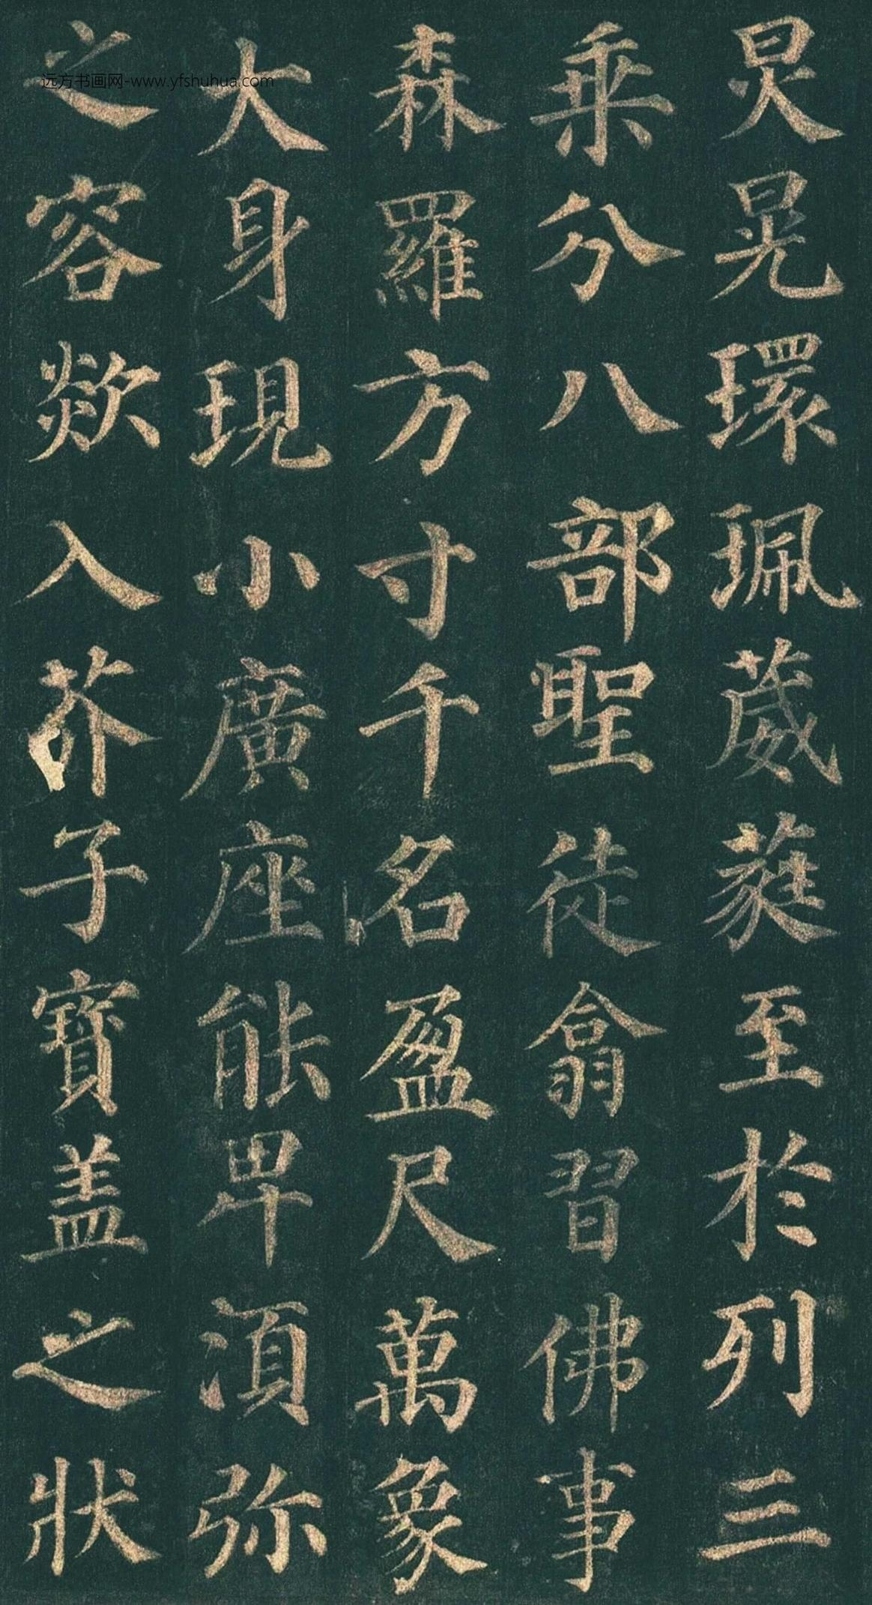 炅晃環珮葳蕤至於列三
乘分八部聖徒翕習佛事
森羅方寸千名盈尺萬象
大身現小廣座能卑湏弥
之容欻入芥子寳盖之狀
远方书画网-www.yfshuhua.com